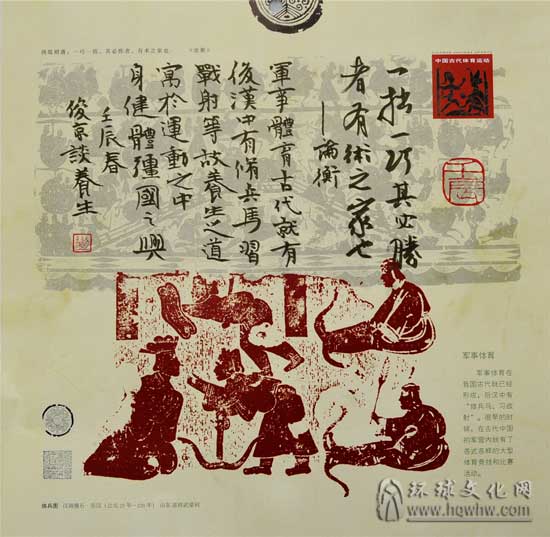 一巧一拙，其必胜者，有术之家也。 《论衡》
中国古代体育运动
一拙一巧其必勝
者有術之家也
——論衡
軍事體育古代就有
後漢中有脩兵馬習
戰射等故養生之道
寓於運動之中
身健體彊國之興
壬辰春
俊京談養生
壬辰
军事体育
军事体育在
我国古代就已经
形成。后汉中有
"修兵马，习战
射"。很早的时
候，在古代中国
的军营内就有了
各式各样的大型
体育竞技和比赛
活动。
兵图 汉画像石·东汉（公元25年—220年） 山东嘉祥武梁祠
环球文化网
www.hqwhw.com